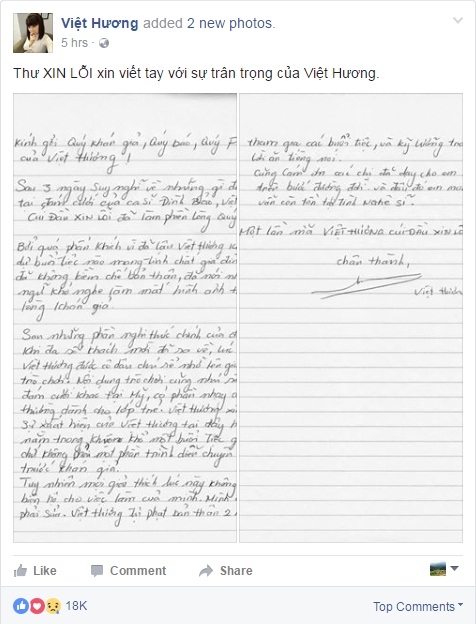 Việt Hương added 2 new photos.
5 hrs ·
Thư XIN LỖI xin viết tay với sự trân trọng của Việt Hương.
Kính gởi Quý khán giả, Quý báo, Quý F
của Việt Hương!
Sau 3 ngày suy nghĩ về những gì đ
tại đám cưới của ca sĩ Đinh Bảo, Việ
Cúi Đầu XIN LỖI đã làm phiền lòng Quý
Bởi quá phấn khích vì đã lâu Việt Hương k
dự buổi tiệc nào mang tính chất gia đìn
đã không kềm chế bản thân, đã nói n
ngữ khó nghe làm mất hình ảnh t
lòng khán giả.
Sau những phần nghi thức chính của đ
khi đa số khách mời đã ra về, lúc
Việt Hương được cô dâu chú rể nhờ lên g
trò chơi. Nội dung trò chơi cũng như
đám cưới khác tại Mỹ, có phần nhạy
thường dành cho lớp trẻ. Việt Hương xi
xuất hiện của Việt Hương tại đây
nằm trong khuôn khổ một buổi tiệc g
chứ không phải một phần trình diễn chuyên
trước khán giả.
Tuy nhiên mọi giải thích lúc này không
biện hộ cho việc làm của mình. Mình
phải sửa. Việt Hương tự phạt bản thân 2
tham gia các buổi tiệc, và kỹ lưỡng tro
lời ăn tiếng nói.
Cũng cảm ơn các chị đã dạy cho em
trên bước đường đời và để em
vẫn còn tồn tại tình nghệ sĩ.
Một lần nữa VIỆT HƯƠNG CÚI ĐẦU XIN LỖI
chân thành,
Việt Hươn
Like Comment Share
18K Top Comments